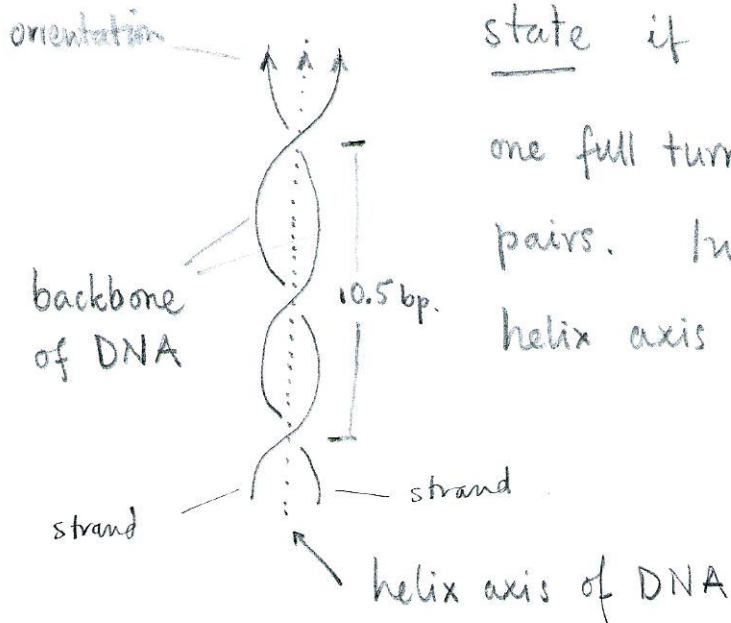 orientation
state if
one full turn
pairs.
helix axis
backbone
of DNA
10.5 bp.
strand
strand
helix axis of DNA